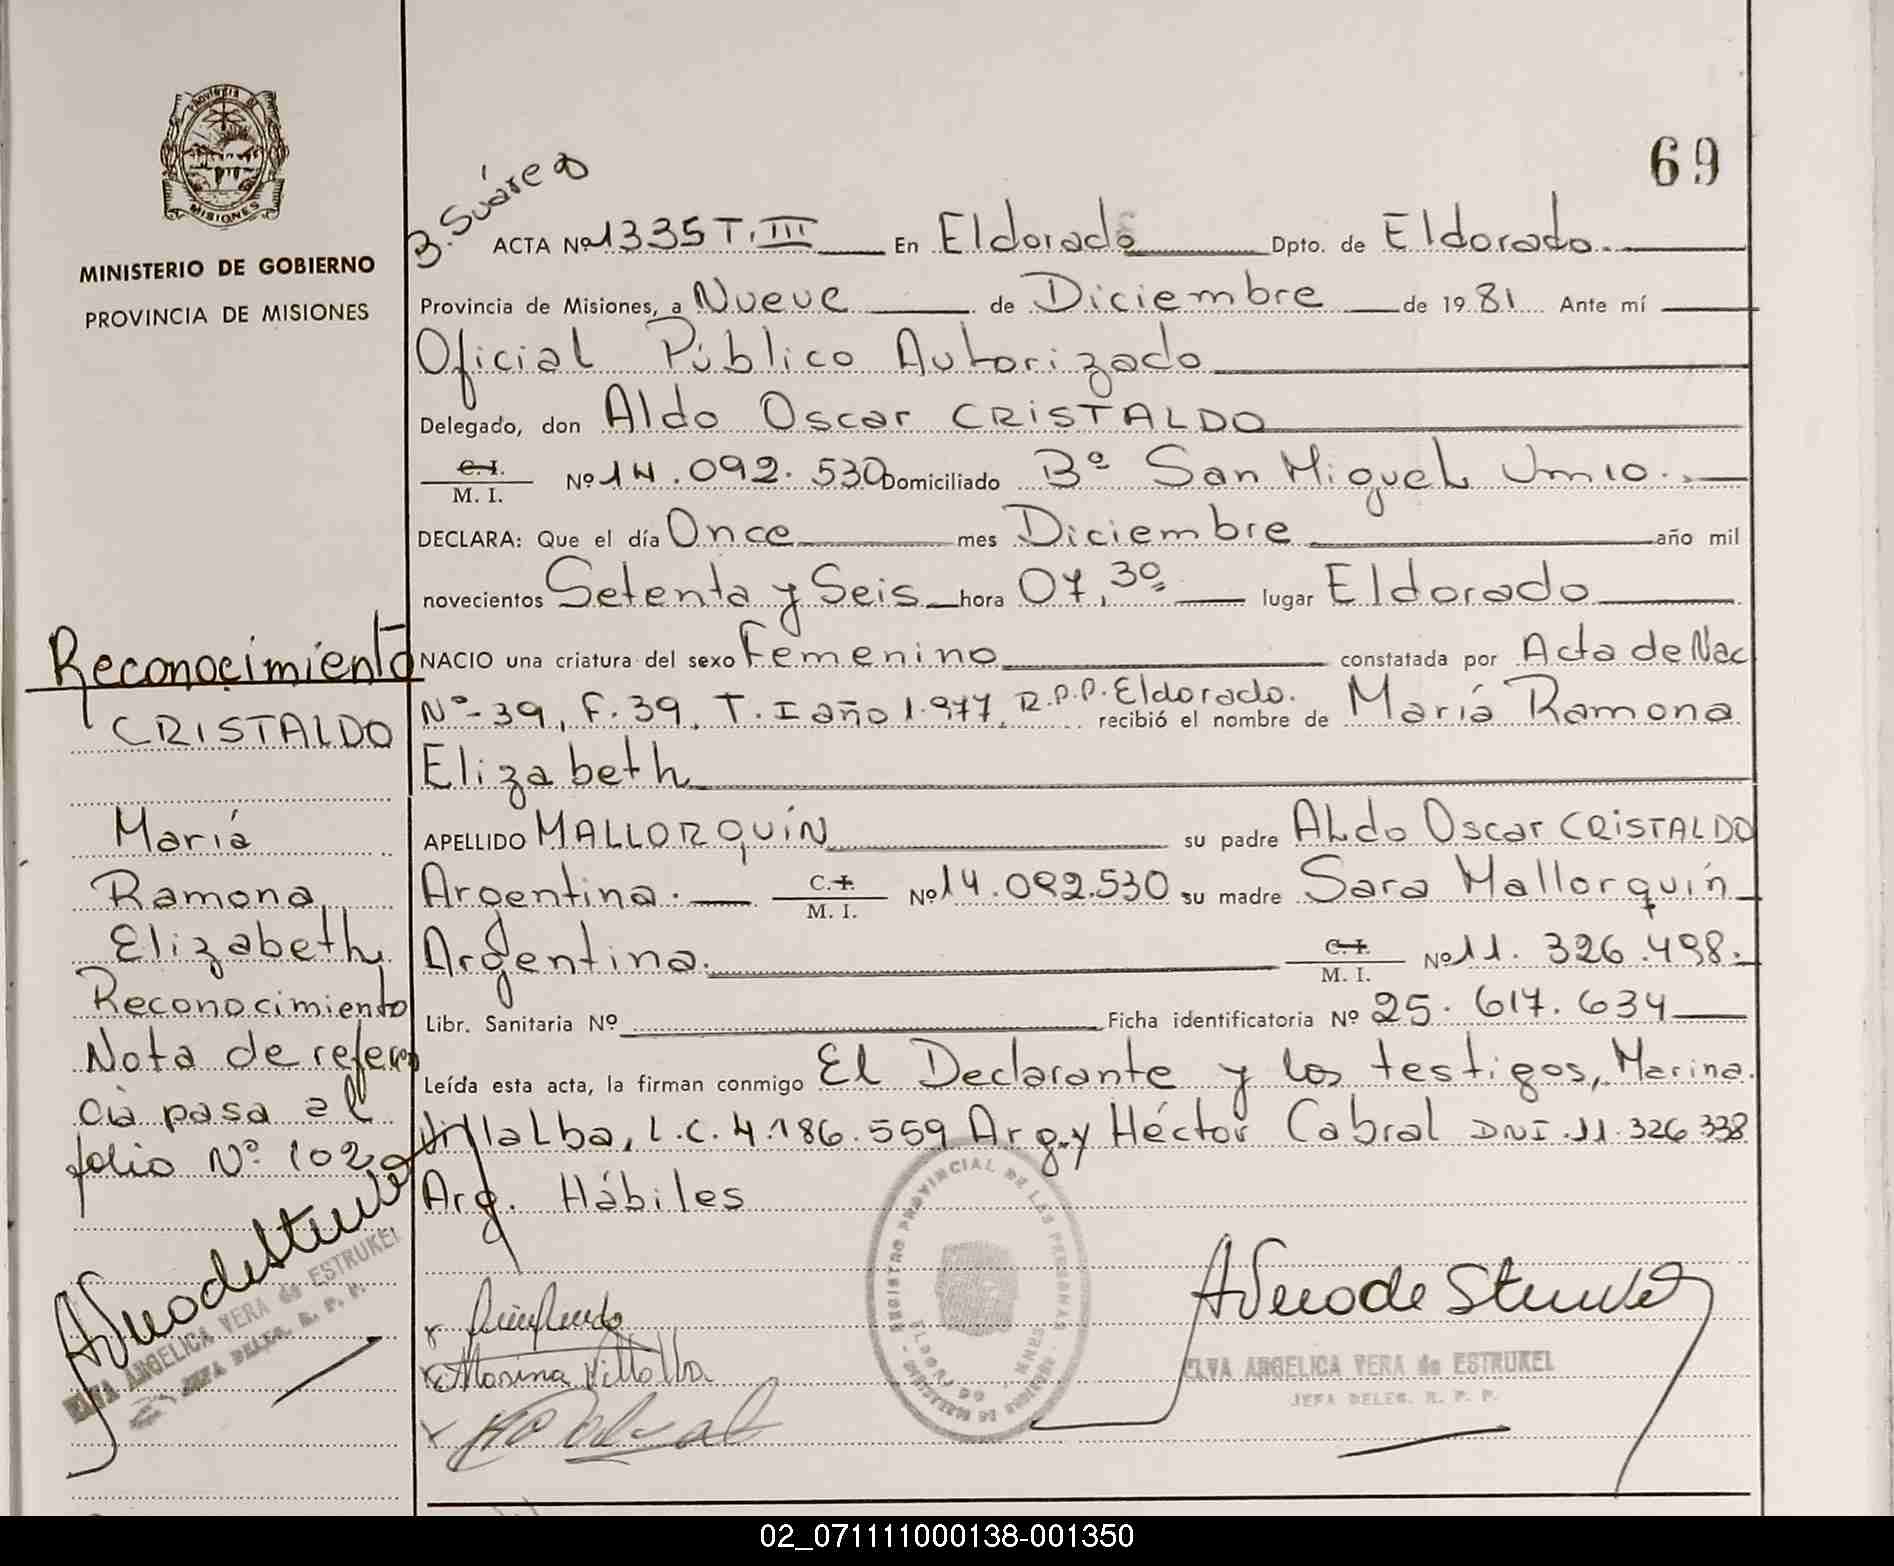 69
PROVINCIA DE
MISIONES
MINISTERIO DE GOBIERNO
PROVINCIA DE MISIONES
B. Suárez
ACTA Nº 1335 T. III En Eldorado Dpto. de Eldorado.
Provincia de Misiones, a Nueve de Diciembre de 1981 Ante mí
Oficial Público Autorizado
Delegado, don Aldo Oscar CRISTALDO
C. I.
M. I. Nº 14.092.530 Domiciliado Bº San Miguel
DECLARA: Que el día Once mes Diciembre año mil
novecientos Setenta y Seis hora 07,30 lugar Eldorado
NACIO una criatura del sexo Femenino constatada por Acta de Nac
Nº-39, F.39, T. I año 1.977, R.P.P. Eldorado. recibió el nombre de María Ramona
Elizabeth
APELLIDO MALLORQUÍN su padre ALdo Oscar CRISTALDO
Argentina. C. I.
M. I. Nº 14.092.530 su madre Sara Mallorquín
Argentina. C. I.
M. I. Nº 11.326.498.
Libr. Sanitaria Nº Ficha identificatoria Nº 25.617.634
Leída esta acta, la firman conmigo El Declarante y los testigos, Marina
Villalba, L.C. 4.186.559 Arg. y Héctor Cabral DNI.11.326 338
Arg. Hábiles
Reconocimiento
CRISTALDO
María
Ramona
Elizabeth
Reconocimiento
Nota de referen
cia pasa al
folio Nº 102
ELVA ANGELICA VERA de ESTRUKEL
JEFA DELEG. R. P. P.
Marina Villalba
REGISTRO PROVINCIAL DE LAS PERSONAS
ELDORADO - MNES.
MINISTERIO DE GOBIERNO
ELVA ANGELICA VERA de ESTRUKEL
JEFA DELEG. R. P. P.
02_071111000138-001350